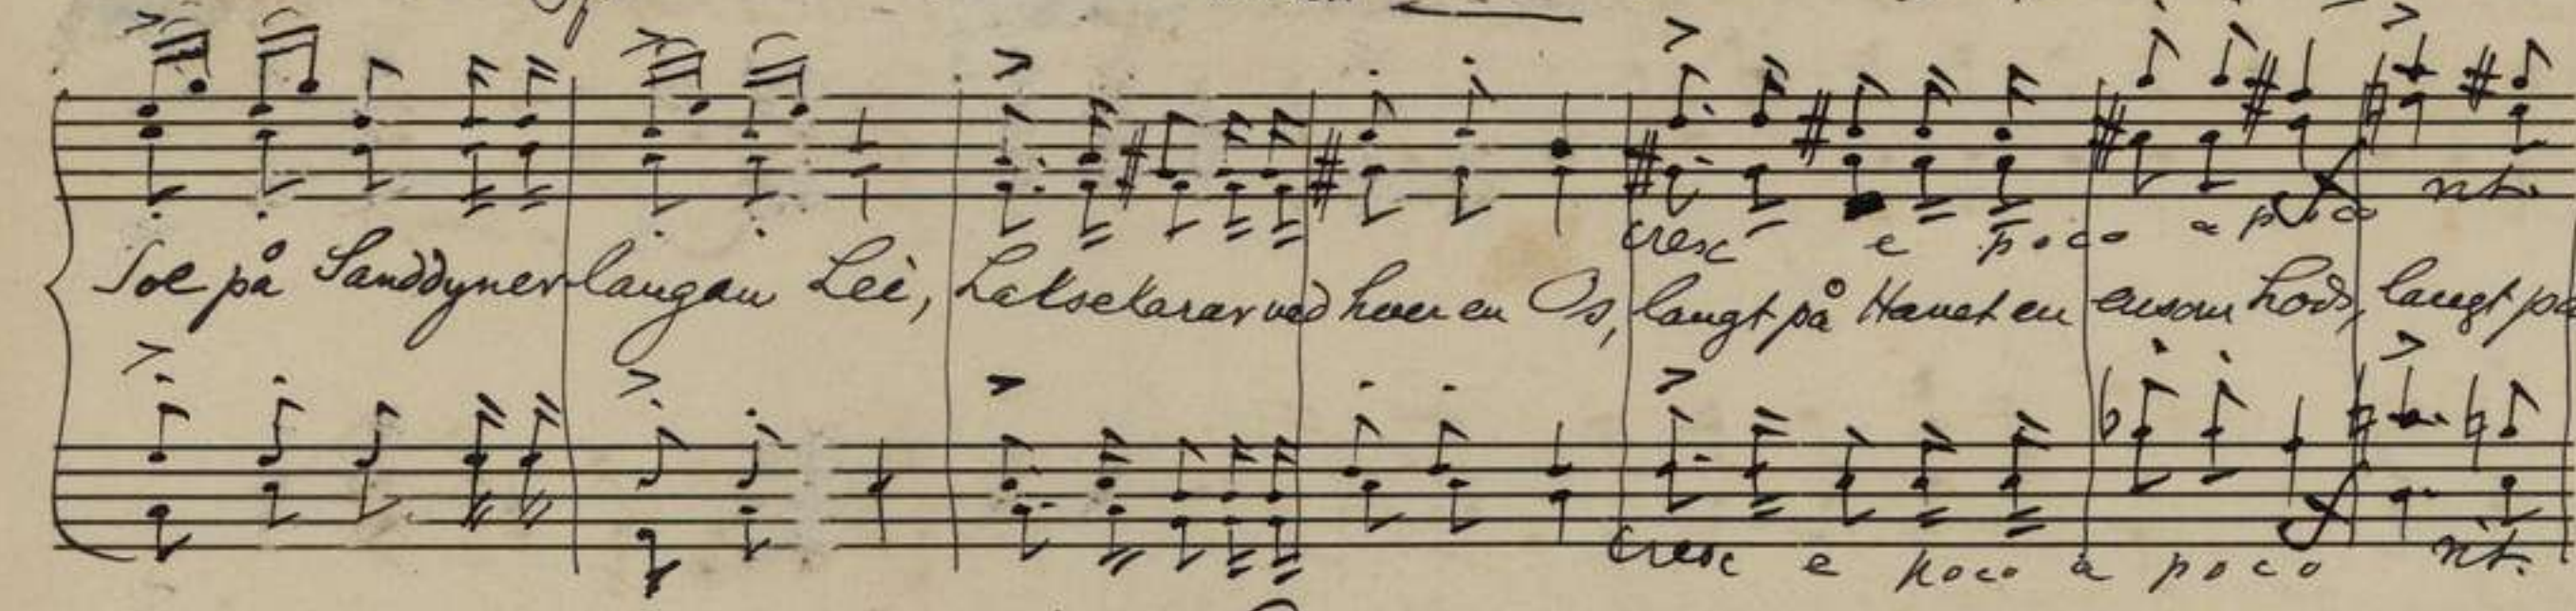 cresc e poco a poco rit.
Sol på Sanddyner langan Lei, Laksekarar ved hver en Os, langt på Havet en ensom Lods, langt på
cresc e poco a poco rit.